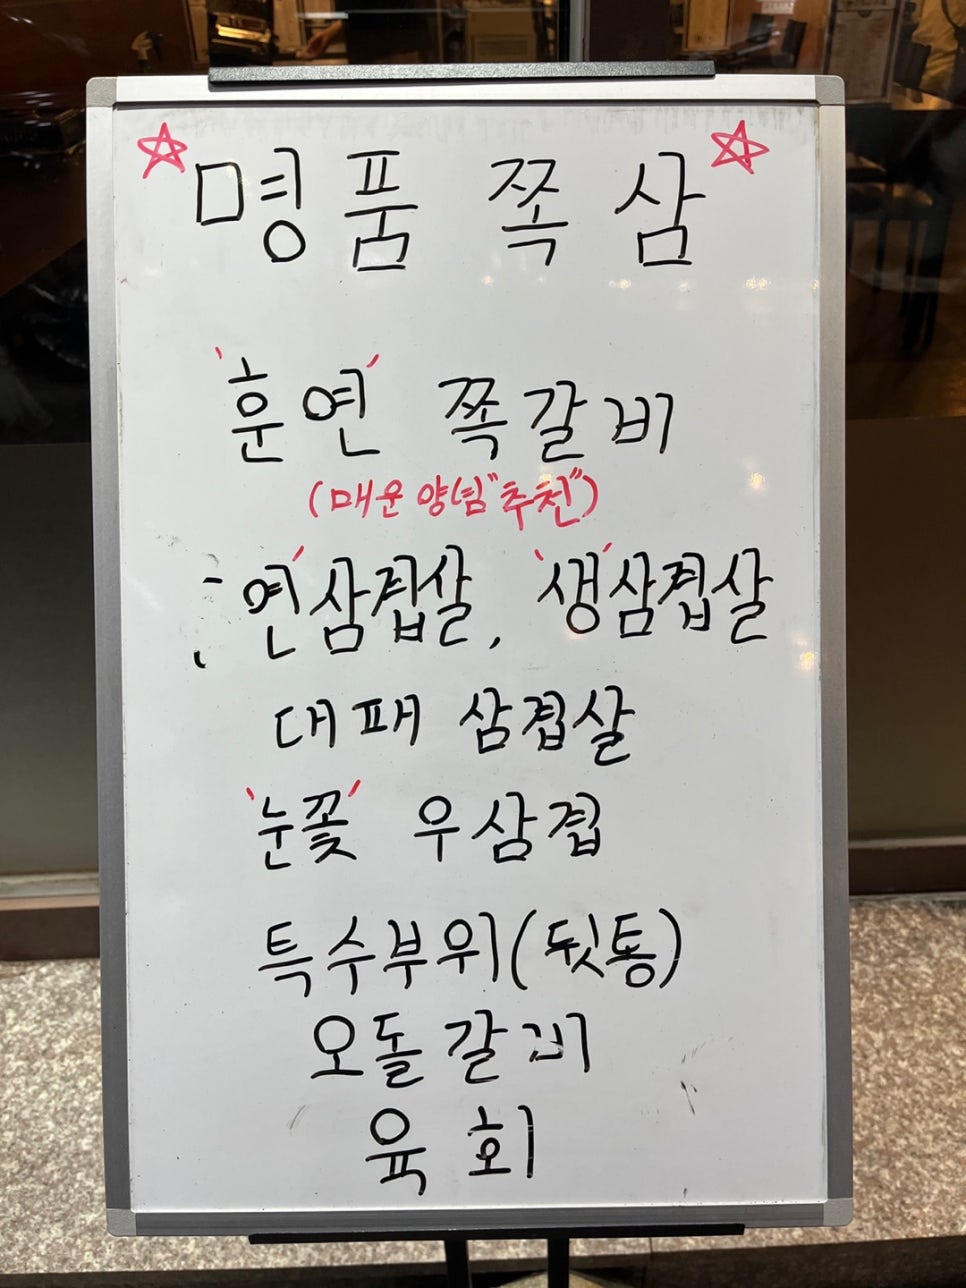 ☆명품 쪽삼☆
'훈연' 쪽갈비
(매운 양념 "추천")
연'삼겹살, '생'삼겹살
대패 삼겹살
'눈꽃' 우삼겹
특수부위(뒷통)
오돌갈비
육회